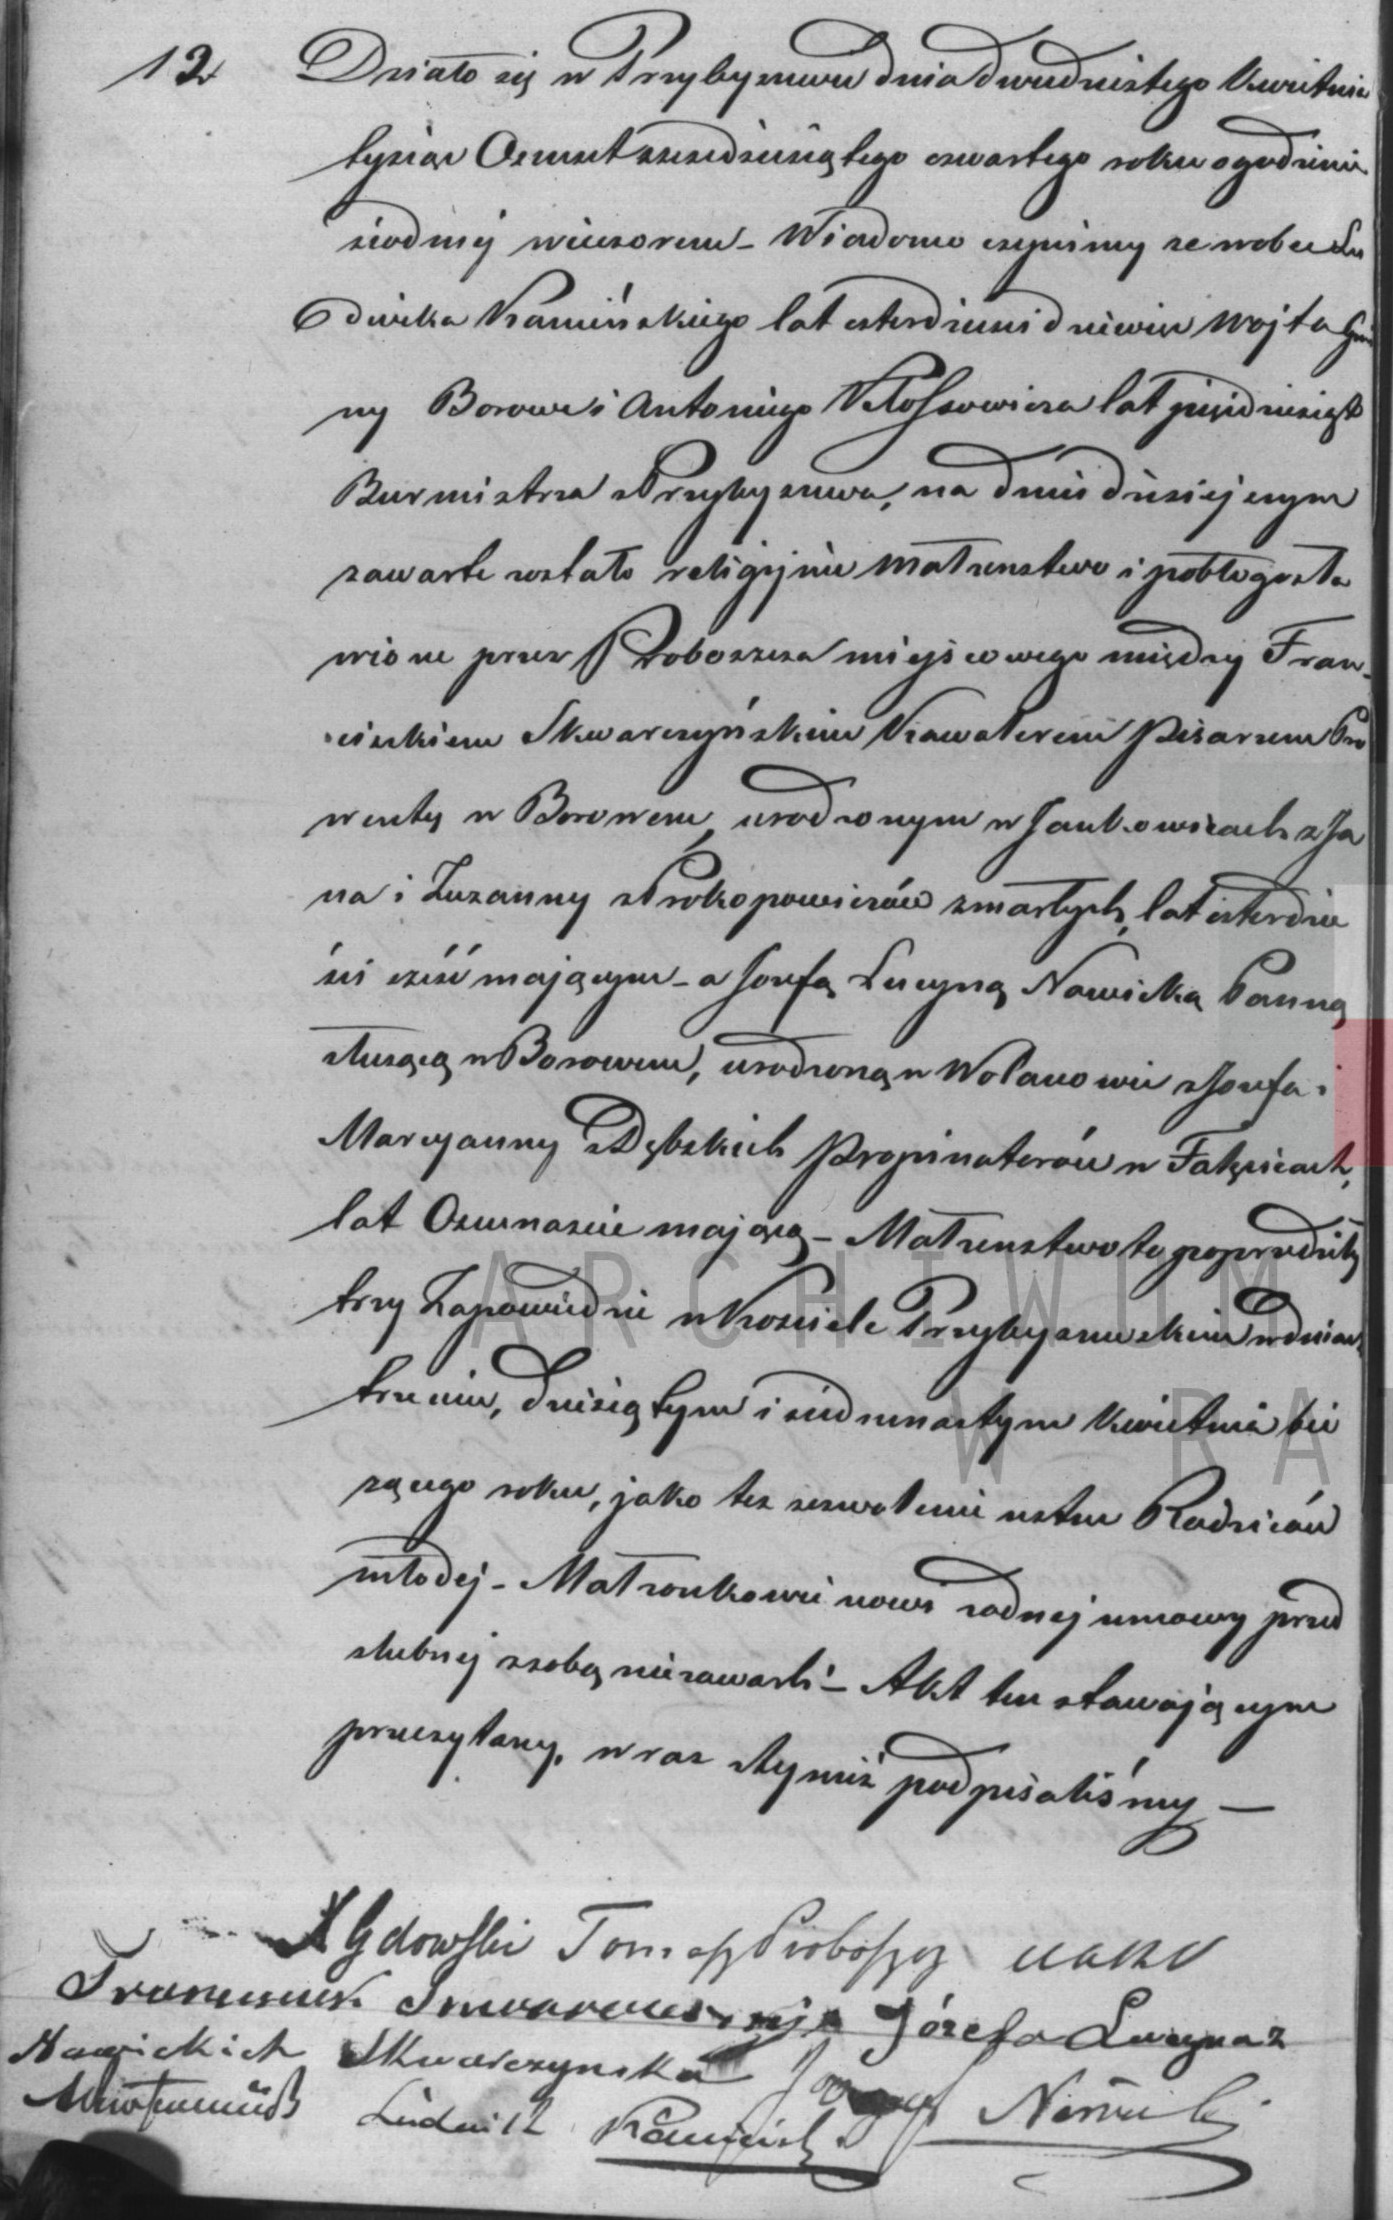 12 Działo się w Przybyszewie dnia dwudziestego Kwietnia
tysiąc Osmset szesdziesiątego czwartego roku o godzinie
siodmej wieczorem – Wiadomo czynimy ze w obec Lu
dwika Kamińskiego lat czterdziesci dziewięć Wojta Gmi
ny Borowe i Antoniego Kłossowicza lat pięćdziesiąt
Burmistrza z Przybyszewa, na dniu dzisiejszym
zawarte zostało religijnie Małżenstwo i pobłogosła
wione przez Proboszcza miejscowego między Fran-
ciszkiem Skwarczyńskim Kawalerem Pisarzem Pro
wenty w Borowem, urodzonym w Jankowicach z Ja
na i Zuzanny z Prokopowiczów zmarłych, lat czterdzie
ści sześć mającym – a Jozefą Lucyną Nowicką Panną
służącą w Borowem, urodzoną w Wolanowie z Jozefa i
Maryanny z Dębskich Propinatorów w Falęcicach,
lat Osmnascie mającą – Małżenstwo to poprzedziły
trzy Zapowiedzie w Kosciele Przybyszewskim w dniach
trzecim, dziesiątym i siedmnastym Kwietnia bie
żącego roku, jako tez zezwolenie ustne Rodziców
młodej – Małżonkowie nowi zadnej umowy przed
slubnej z sobą niezawarli – Akt ten stawającym
przeczytany, wraz z tymiż podpisaliśmy –
X Gdowski Tomasz Proboszcz
Franciszek Józefa Lucyna z
Nowickich Skwarczyńska Józef Nowicki
Ludwik Kamiński
ARCHIWUM
W RA